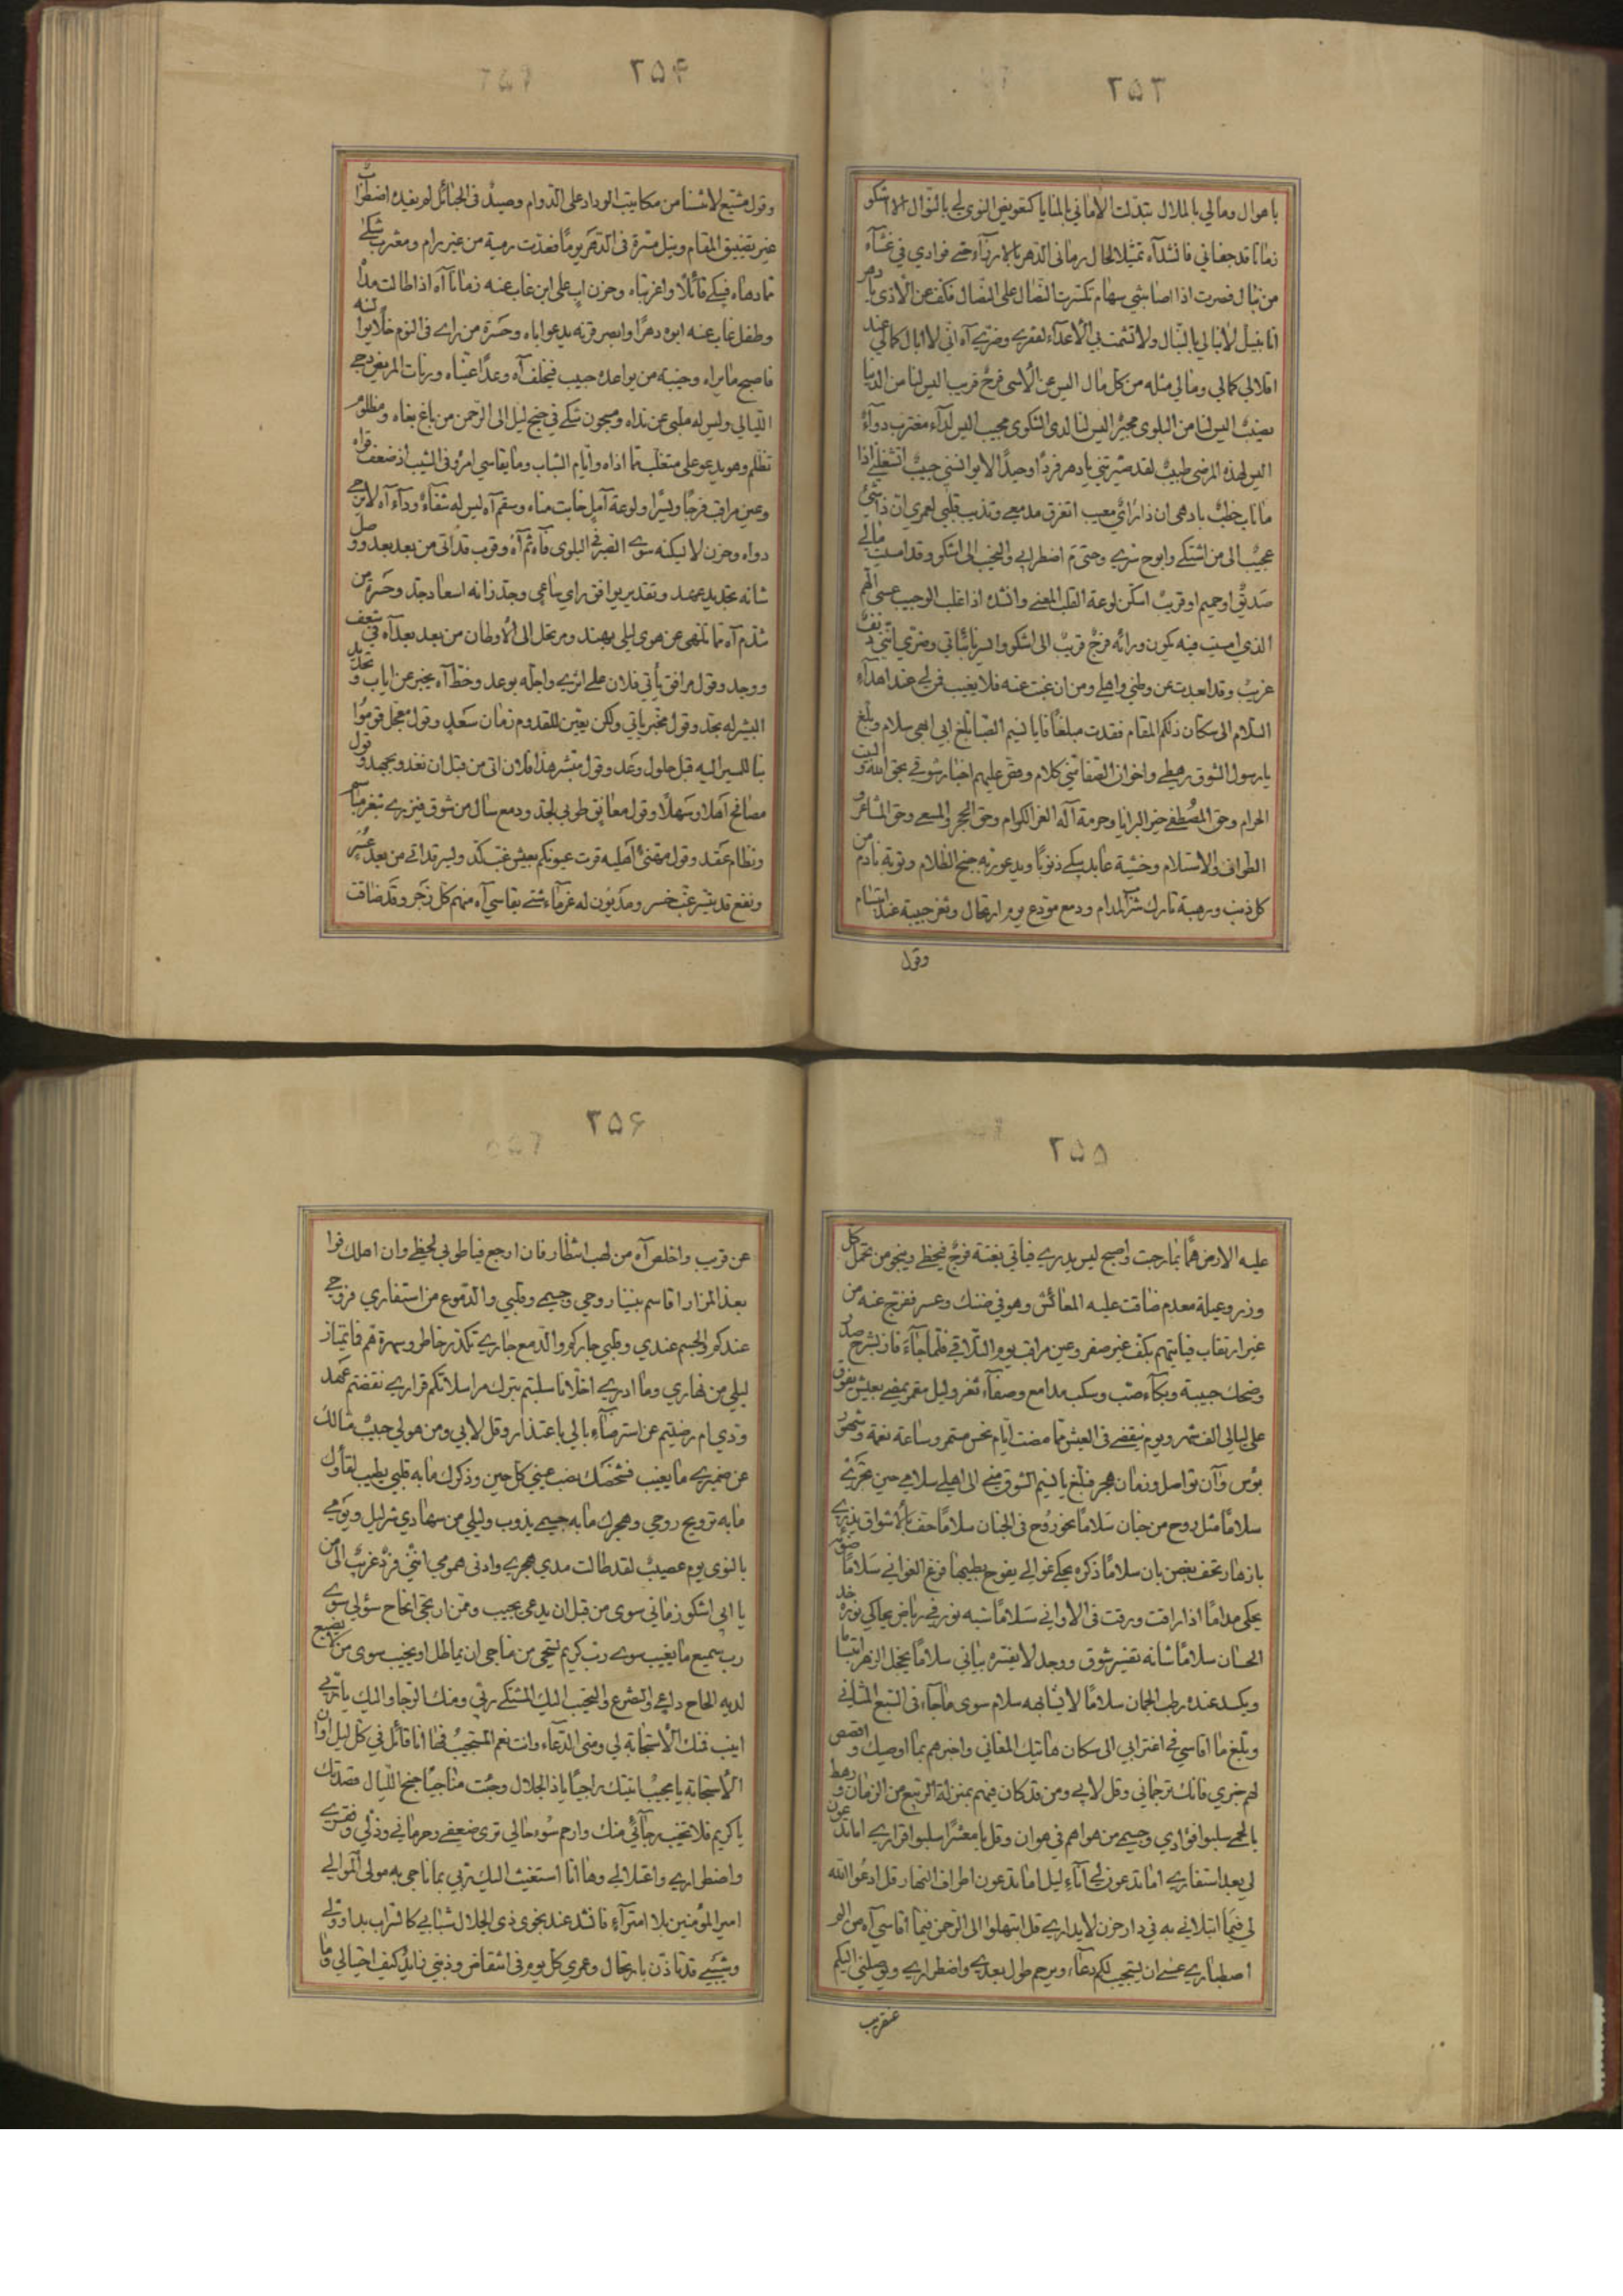 ٢٥٣
باهوال ومالي بالملال تبدلت الأماني بالمنايا كتعويض النوى لي بالنوال الا اشكو
زمانا قد جفاني فانشد آه تمثيلا لحال رماني الدهر بالارزاء حتى فوادي في غشاء
من نبال فصرت اذا اصابتني سهام تكسرت النصال على النصال فكف عن الأذى يا دهر
انا بنبيل لأبالي بالنبال ولا تشمت بي الأعداء لفقري وضري آه اني لا ابال كمالي عند
اقلالي كمالي ومالي مثله من كل مال اليس عن الأسى فرج قريب اليس لنا من الدنيا
نصيب اليس لنا من البلوى مجير اليس لنا لدى الشكوى مجيب اليس لداء مغترب دواء
اليس لهذه المرضى طبيب لقد صيرتني يا دهر فردا وحيدا لا يوانسني حبيب اتشغلني اذا
ما ناب خطب يا دهى ان ذا رائ معيب اتغرق مدمعي وتذيب قلبي لعمري ان ذا شئ
عجيب الى من اشتكي وابوح سري وحتى م اضطرابي والنحيب الى اشكو وقد امسيت مالي
صديق او حميم او قريب اسكن لوعة القلب المعنى وانشده اذا غلب الوجيب عسى الهم
الذي امسيت فيه يكون ورائه فرج قريب الى اشكو واليس يائباتي وضري انني دنف
غريب وقد ابعدت عن وطني واهلي ومن ان غبت عنه فلا يغيب فمن لي عند اهداء
السلام الى سكان ذلكم المقام فقدت مبلغا فايا نسيم الصبا بلغ ابي اهى سلام وبلغ
يا رسول الشوق رهطي واخوان الصفا مني كلام وقص عليهم اخبار شوقي بحق الله والبيت
الحرام وحق المصطفى خير البرايا وحرمة آله الغر الكرام وحق الحجر والمسعى وحق المشاعر و
الطواف والاستلام وخشية عابد يبكي ذنوبا ويدعو ربه جنح الظلام وتوبة نادم من
كل ذنب ورهبة تارك شرب المدام ودمع مودع يوم ارتحال وثغر حبيبة عند ابتسام
وقول
٢٥۴
وقول مشيع لا تنسنا من مكاتيب الوداد على الدوام وصيد في الحبائل لم يفيده اضطراب
غير تضييق المقام ونيل مسرة في الدهر يوما فغدت رمية من غير رام ومغترب شكى
مما دهاه فيبكي قائلا واغربتاه وحزن اب على ابن غاب عنه زمانا آه اذا طالت مداه
وطفل غاب عنه ابوه دهرا وابصر قرنه يدعو اباه وحسرة من رأى في النوم خلا بوا
فاصبح ما يراه وخيبة من يواعده حبيب فيخلف آه وعدا عيناه ورنات المريض دجى
الليالي وليس له ملبي عن نداه ومسجون شكى في جنح ليل الى الرحمن من باغ بغاه ومظلوم
تظلم وهو يدعو على متغلب مما اذاه وايام الشباب وما يقاسي امرؤ في الشيب اذ ضعفت قواه
وعين مراقب فرجا ويسرا ولوعة آمل خابت مناه وسقم آه ليس له شفاء وداء آه لا يرجى
دواه وحزن لا يسكنه سوى الصبر في البلوى فآه ثم آه وقرب قد اتى من بعد بعد ووصل
شانه تجديد عهد وتقدير يوافق راي ساعي وجد زانه اسعاد جد وحسرة من
شذم آه مما تلهى عن هوى ليلى بهند ومرتحل الى الأوطان من بعد بعد آه في شغف
ووجد وقول مرافق يأتي فلان على اثري واجله بوعد وخط آه يخبر عن اياب وتحديد
البشير له بجد وقول مخبر ياتي ولكن يعين للقدوم زمان سعد وقول معجل قوموا
بنا للسير اليه قبل حلول وعد وقول مبشر هذا فلان اتى من قبل ان نغدو بجهد وقول
مصافح اهلا وسهلا وقول معانق طوبى لجد ودمع سال من شوق فيزري بثغر باسم
ونظام عقد وقول مهنئ اهليه قرت عيونكم بعيش غب كد ويسر قد اتى من بعد عسر
ونفع قد تيسر غب خسر ومديون له غرماء شتى يقاسي آه منهم كل زجر وقد ضاقت
٢٥٥
عليه الارض هما بما رحبت واصبح ليس يدري فياتي بغتة فرج فيحظى وينجو من تحمل كل
وزر وعيلة معدم ضاقت عليه المعائش وهو في ضنك وعسر ففرج عنه من
غير ارتقاب فيأتيهم بكف غير صفر وعين مراقب يوم التلاقي فلما جاء فاز بشرح صدر
وضحك حبيبة وبكاء صب وسكب مدامع وصفاء ثغر وليل مقمر يمضي بعيش يفوق
على ليالي الف شهر ويوم ينقضي في العيش مما مضت ايام نحس مستمر وساعة نعمة وشهور
بؤس وآن تواصل وزمان هجر فبلغ يا نسيم الشوق مني الى اهلي سلامي حين تجري
سلاما مثل روح من جنان سلاما نحو روح في الجنان سلاما حف بالأشواق يزري
بازهار تحف بغصن بان سلاما ذكره يحكي غوالي يفوح بطيبها فرع الغواني سلاما ضوء
يحكي مداما اذا راقت ورقت في الاواني سلاما شبه نور في رياض يحاكي نوره خد
الحسان سلاما شانه تفسير شوق ووجد لا يفسره بياني سلاما يخجل الزهر ابتساما
ويكسد عنده رطب الجمان سلاما لا يشابهه سلام سوى ما جاء في السبع المثاني
وبلغ ما اقاسي في اغترابي الى سكان هاتيك المغاني واخبرهم بما اوصيك واقصص
لهم خبري فانك ترجماني وقل لابي ومن قد كان فيهم بمنزلة الربيع من الزمان ورهط
بالحمى سلبوا فؤادي وجسمي من هواهم في هوان وقل يا معشرا سلبوا قراري اما تدعون
لي بعد استفاري اما تدعون لي آناء ليل اما تدعون اطراف النهار قل ادعوا الله
لي فيما ابتلاني به في دار حزن لا يداري قل ابتهلوا الى الرحمن فيما اقاسي آه من الم
اصطباري عسى ان يستجيب لكم دعاء ويرحم طول بعدي واضطراري ويوصلني اليكم
عنقريب
٢٥۶
عن قريب واخلص آه من لهب انتظار فان ارجع فيا طوبى لحظي وان اهلك فوا
بعد المزار اقاسم بيننا روحي وجسمي وقلبي والدموع من استفاري فروحي
عندكم والجسم عندي وقلبي جاركم والدمع جاري تكدر خاطر وسهرة قم فما يمتاز
ليلي من نهاري وما ادري اخلانا سلبتم بترك مراسلاتكم قراري نقضتم عهد
ودي ام رضيتم عن استرضاء بالي باعتذار وقل لابي ومن هو لي حبيب خالك
عن ضميري ما يغيب فشخصك نصب عيني كل حين وذكرك ما به قلبي يطيب لقاؤك
ما به ترويح روحي وهجرك ما به جسمي يذوب وليلي من سهادي شر ليل ويومي
بالنوى يوم عصيب لقد طالت مدى هجري وادنى همومي انني فرد غريب الى من
يا ابي اشكو زماني سوى من قبل ان يدعى يجيب وممن ارتجي انجاح سؤلي سوى
رب سميع ما يغيب سوى رب كريم يستحي من مناجى ان يماطل او يخيب سوى من لا يضيع
لديه الحاح داعي والتضرع والنحيب اليك المشتكى ربي ومنك الرجا واليك يا ربي
انيب فمنك الأستجابة لي ومني الدعاء وانت نعم المستجيب فها انا قائل في كل ليل اوان
الأستجابة يا مجيب اتيتك راجيا يا ذا الجلال وجئت مناجيا جنح الليال قصدتك
يا كريم فلا تخيب رجائي منك وارحم سوء حالي ترى ضعفي وحرماني وذلي وفقري
واضطراري واعتلالي وها انا استغيث اليك ربي بما ناجى به مولى الموالي
امير المؤمنين بلا امتراء فانشد عند نجوى ذي الجلال شبابي كالشراب بدا وولى
وشيبي قد تاذن بارتحال وعمري كل يوم في انتقاض وذنبي زائد كيف احتيالي وما